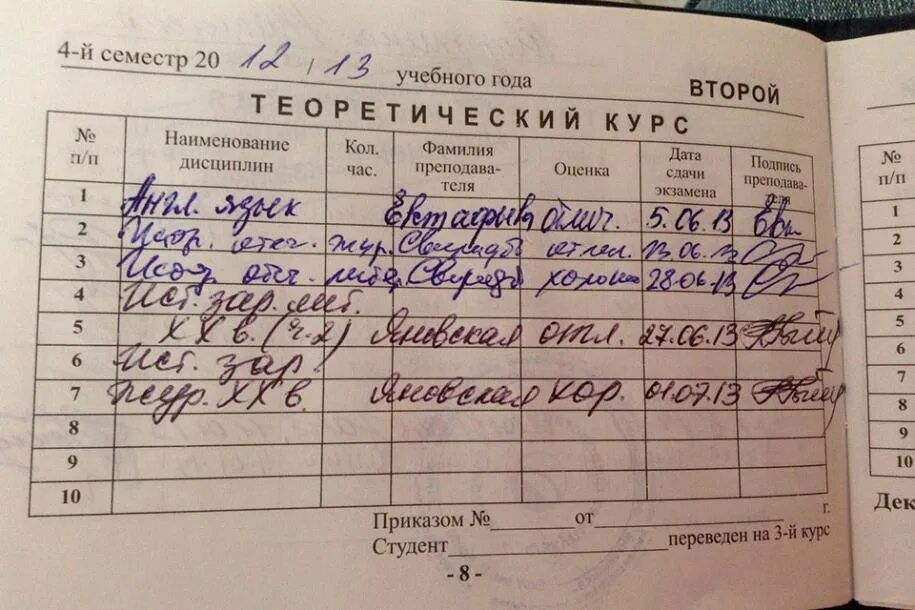 4-й семестр 2012/13 учебного года ВТОРОЙ
ТЕОРЕТИЧЕСКИЙ КУРС
№ п/п Наименование дисциплин Кол. час. Фамилия преподава-теля Оценка Дата сдачи экзамена Подпись преподава-теля
1 Англ. язык отлич. 5.06.13
2 Истор. отеч. жур. отлич. 13.06.13
3 отеч. хорошо 28.06.13
4 Ист. зар. лит.
5 XX в. (ч.2) Яновская отл. 27.06.13
6 Ист. зар.
7 Жур. XX в. Яновская хор. 01.07.13
8
9
10
Приказом № от г.
Студент переведен на 3-й курс
- 8 -
№ п/п
1
2
3
4
5
6
7
8
9
10
Дек